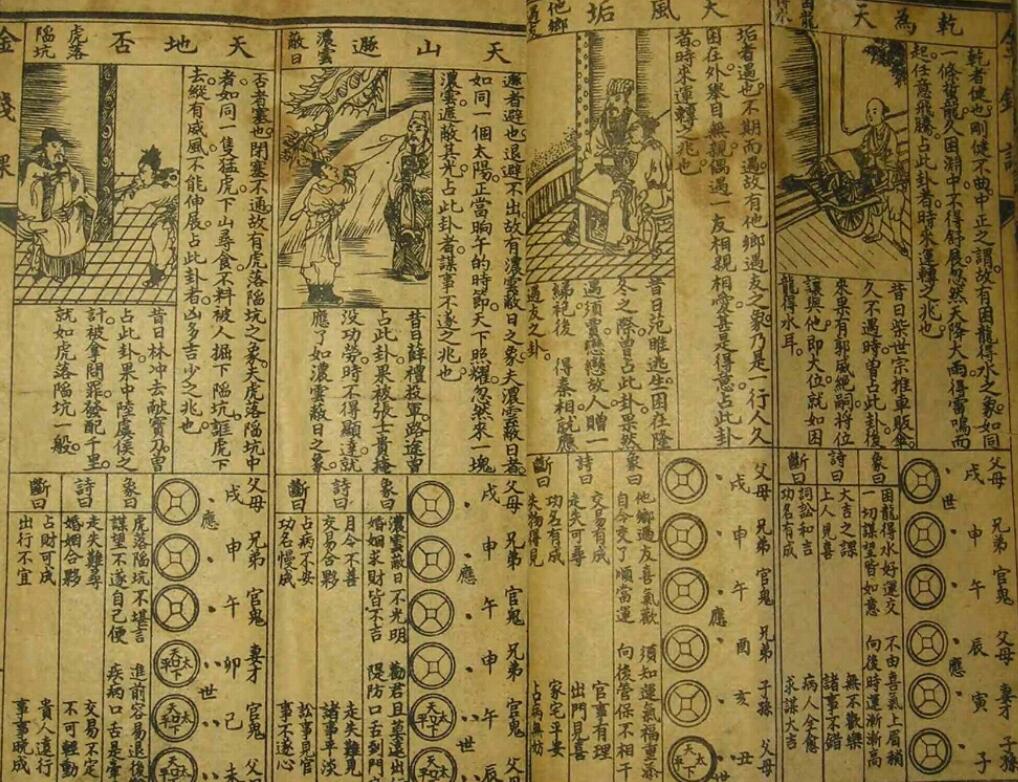 乾為天
困龍得水
乾者健也剛健不曲中正之謂故有困龍得水之象如同
一條蛟龍久困淵中不得舒展忽然天降大雨得雷鳴而
起任意飛騰占此卦者時來運轉之兆也
昔日柴世宗推車販傘
久不遇時曾占此卦後
來果有郭威絕嗣將位
讓與他即大位就如困
龍得水耳
父母 兄弟 官鬼 父母 妻才 子孫
戌 申 午 辰 寅 子
世 應
象曰
困龍得水好運交 不由喜氣上眉梢
一切謀望皆如意 向後時運漸漸高
詩曰
大吉之課 無不歡樂
上人見喜 諸事不錯
斷曰
詞訟和吉 病人全愈
功名有成 求謀大吉
天風姤
他鄉遇友
姤者遇也不期而遇故有他鄉遇友之象乃是一行人久
困在外舉目無親偶遇一友相親相愛甚是得意占此卦
者時來運轉之兆也
昔日范雎逃生困在隆
冬之際曾占此卦果然
遇須賈戀戀故人贈一
綈袍後 得秦相就應
遇友之卦
父母 兄弟 官鬼 兄弟 子孫 父母
戌 申 午 酉 亥 丑
應 世
象曰
他鄉遇友喜氣歡 須知運氣福重
自今交了順當運 向後管保不相干
詩曰
交易有成 官事有理
走失可尋 出門見喜
斷曰
功名有成 家宅平安
失物得見 占病無妨
天山遯
濃雲蔽日
遯者避也退避不出故有濃雲蔽日之象夫濃雲蔽日者
如同一個太陽正當晌午的時節天下照耀忽然來一塊
濃雲遮蔽其光占此卦者謀事不遂之兆也
昔日薛禮投軍路途曾
占此卦果被張士貴掩
沒功勞時不得顯達就
應了如濃雲蔽日之象
父母 兄弟 官鬼 兄弟 官鬼 父母
戌 申 午 申 午 辰
應 世
象曰
濃雲蔽日不光明 勸君且莫遠出
婚姻求財皆不吉 隄防口舌到門
詩曰
月令不善 走失難見
交易合夥 諸事平淡
斷曰
占病不安 訟事見官
功名慢成 事不遂心
天地否
虎落陷坑
否者塞也閉塞不通故有虎落陷坑之象夫虎落陷坑中
者如同一隻猛虎下山尋食不料被人掘下陷坑誆虎下
去縱有威風不能伸展占此卦者凶多吉少之兆也
昔日林冲去献寶刀曾
占此卦果中陸虞侯之
計被拿問罪發配千里
就如虎落陷坑一般
父母 兄弟 官鬼 妻才 官鬼 父母
戌 申 午 卯 巳 未
應 世
天下太平
象曰
虎落陷坑不堪言 進前容易退後
謀望不遂自己便 疾病口舌是牽
詩曰
走失難尋 交易不定
婚姻合夥 不可輕動
斷曰
占財可成 貴人遠行
出行不宜 事事晚成
金錢課